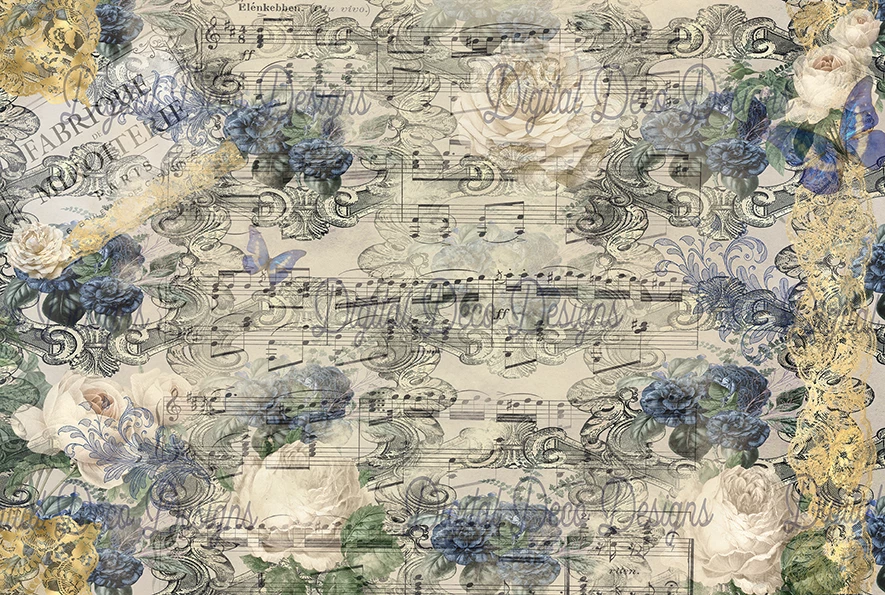 Elénkebben. (Più vivo.)
ff
FABRIQUE
DE
MIROITERIE
PARIS
Digital Deco Designs
Digital Deco Designs
Digital Deco Designs
ff
Digital Deco Designs
Digital Deco Designs
riten.